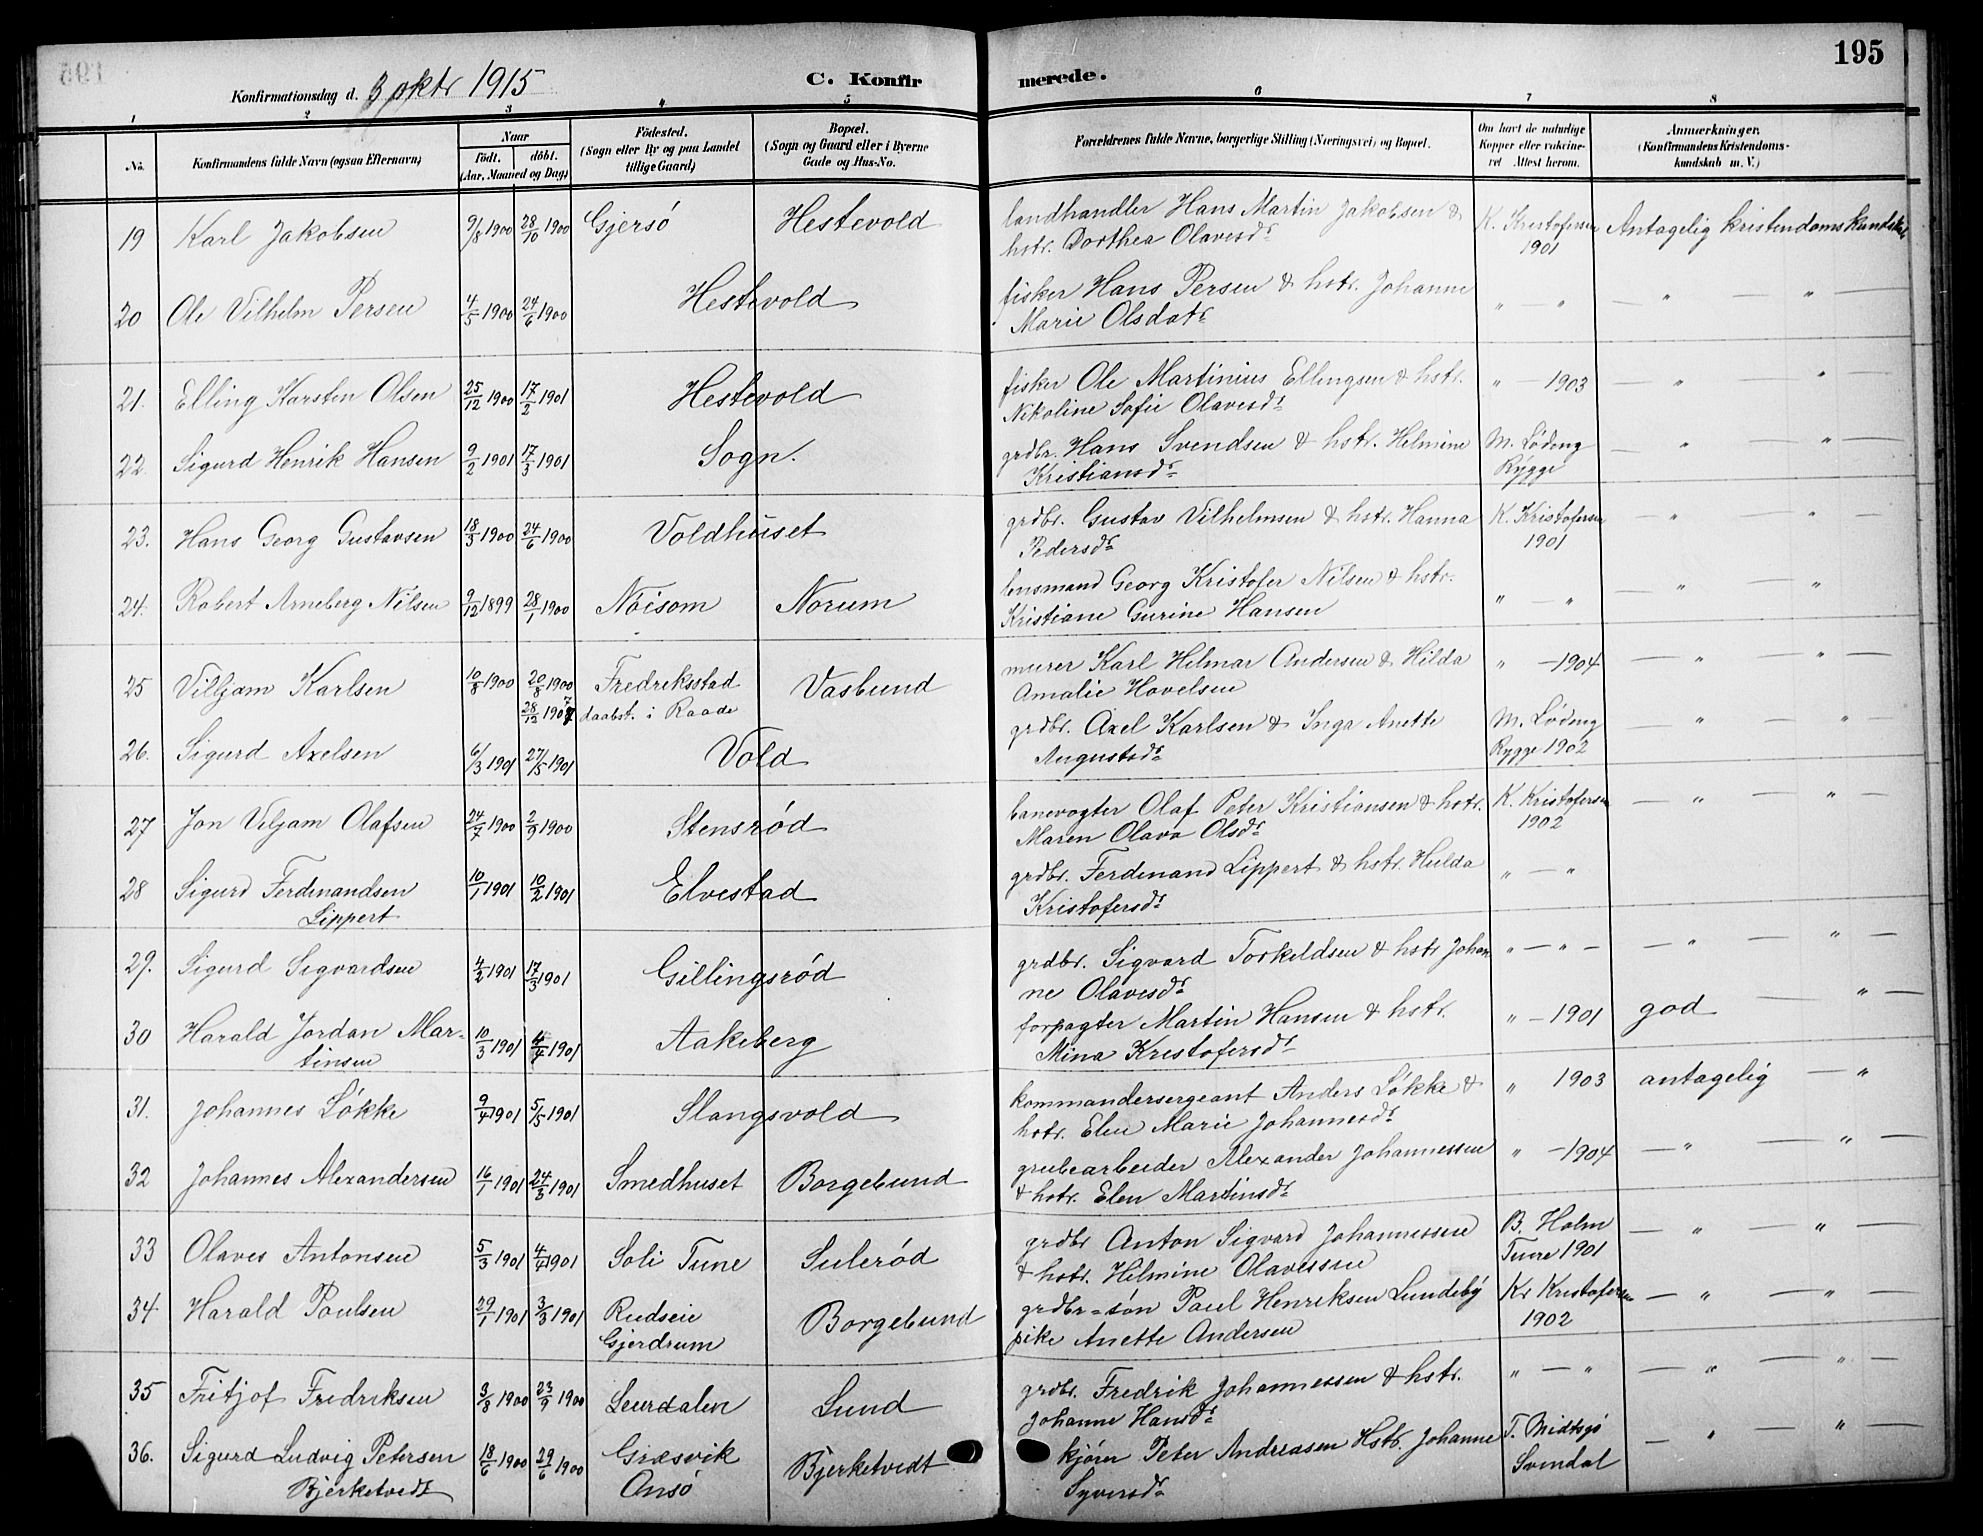 195
Konfirmationsdag d. 3 oktr 1915
C. Konfirmerede.
1 2 3 4 5 6 7 8
No. Konfirmandens fulde Navn (ogsaa Efternavn) Naar født. døbt. (Aar, Maaned og Dag) Fødested. (Sogn eller By og paa Landet tillige Gaard) Bopæl. (Sogn og Gaard eller i Byerne Gade og Hus-No. Forældrenes fulde Navne, borgerlige Stilling (Næringsvei) og Bopæl. Om havt de naturlige Kopper eller vakcineret Attest herom. Anmærkninger. (Konfirmandens Kristendomskundskab m. V.)
19 Karl Jakobsen 9/8 1900 28/10 1900 Gjersø Hestevold landhandler Hans Martin Jakobsen & K. Kristofersen Antagelig kristendomskundskab
hstr. Dorthea Olavesdr 1901
20 Ole Vilhelm Persen 4/5 1900 24/6 1900 Hestevold fisker Hans Persen & hstr. Johanne " " — " — " —
Marie Olsdatr
21. Elling Karsten Olsen 25/12 1900 17/2 1901 Hestevold fisker Ole Martinius Ellingsen & hstr. " — 1903 — " — " —
Nikoline Sofie Olavesdr
22. Sigurd Henrik Hansen 9/2 1901 17/3 1901 Sogn. grdbr. Hans Svendsen & hstr. Helmine M. Lødeng — " — " —
Kristiansdr Rygge
23. Hans Georg Gustavsen 18/3 1900 24/6 1900 Voldhuset grdbr. Gustav Vilhelmsen & hstr. Hanna K. Kristofersen — " — " —
Pedersdr 1901
24. Robert Arneberg Nilsen 9/12 1899 28/1 1900 Nøisom Norum lensmand Georg Kristofer Nilsen & hstr. " — " — " — "
Kristiane Gurine Hansen
25 Viljam Karlsen 10/8 1900 20/8 1900 Fredriksstad Vasbund murer Karl Helmar Andersen & Hilda " — 1904 — " — " —
28/12 1907 daabst. i Raade Amalie Hovelsen
26. Sigurd Axelsen 6/3 1901 27/5 1901 Vold grdbr. Axel Karlsen & Inga Anette M. Lødeng — " — "
Augustsdr Rygge 1902
27 Jon Viljam Olafsen 24/7 1900 2/9 1900 Stensrød banevogter Olaf Peter Kristiansen & hstr. K. Kristofersen — " — " —
Maren Olava Olsdr 1902
28 Sigurd Ferdinandsen 10/1 1901 10/2 1901 Elvestad grdbr. Ferdinand Lippert & hstr. Hulda " — "
Lippert Kristofersdr
29. Sigurd Sigvardsen 4/2 1901 17/3 1901 Gillingsrød grdbr. Sigvard Torkeldsen & hstr Johan " — " — — " — " —
ne Olavesdr
30 Harald Jordan Mar- 10/3 1901 4/4 1901 Aakeberg forpagter Martin Hansen & hstr. " — 1901 god — " —
tinsen Mina Kristofersdr
31. Johannes Løkke 9/4 1901 5/5 1901 Slangsvold kommandersergeant Anders Løkke & " 1903 antagelig — "
hstr. Elen Marie Johannesdr
32 Johannes Alexandersen 16/1 1901 24/3 1901 Smedhuset Borgebund grubearbeider Alexander Johannessen " — 1904 — " — " —
& hstr. Elen Martinsdr
33 Olaves Antonsen 5/3 1901 4/4 1901 Soli Tune Sulerød grdbr Anton Sigvard Johannessen B. Holm — " — " —
& hstr. Helmine Olavessen Tune 1901
34 Harald Poulsen 29/1 1901 3/3 1901 Rudseie Borgebund grdbr-søn Paul Henriksen Lundeby Kr Kristofersen — " — " —
Gjerdrum pike Anette Andersen 1902
35 Fritjof Fredriksen 3/8 1900 23/9 1900 Leurdalen Lund grdbr. Fredrik Johannessen & hstr. " — " — " — " —
Johanne Hansdr
36. Sigurd Ludvig Petersen 18/6 1900 29/6 1900 Græsvik Bjerketvedt kjører Peter Andreasen Hstr. Johanne T. Midtsjø — " — " —
Bjerketvedt Onsø Syversdr Svendal